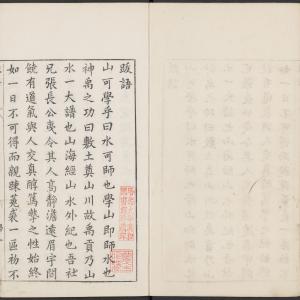 跋語
山可學乎曰水可師也學山即師水也
神禹之功曰敷土奠山川故禹貢乃山
水一大譜也山海經山水外紀也吾社
兄張長公夷令其人高靜澹遠眉宇間
饒有道氣與人交真醇篤摯之性始終
如一日不可得而親踈蒐裘一區初不